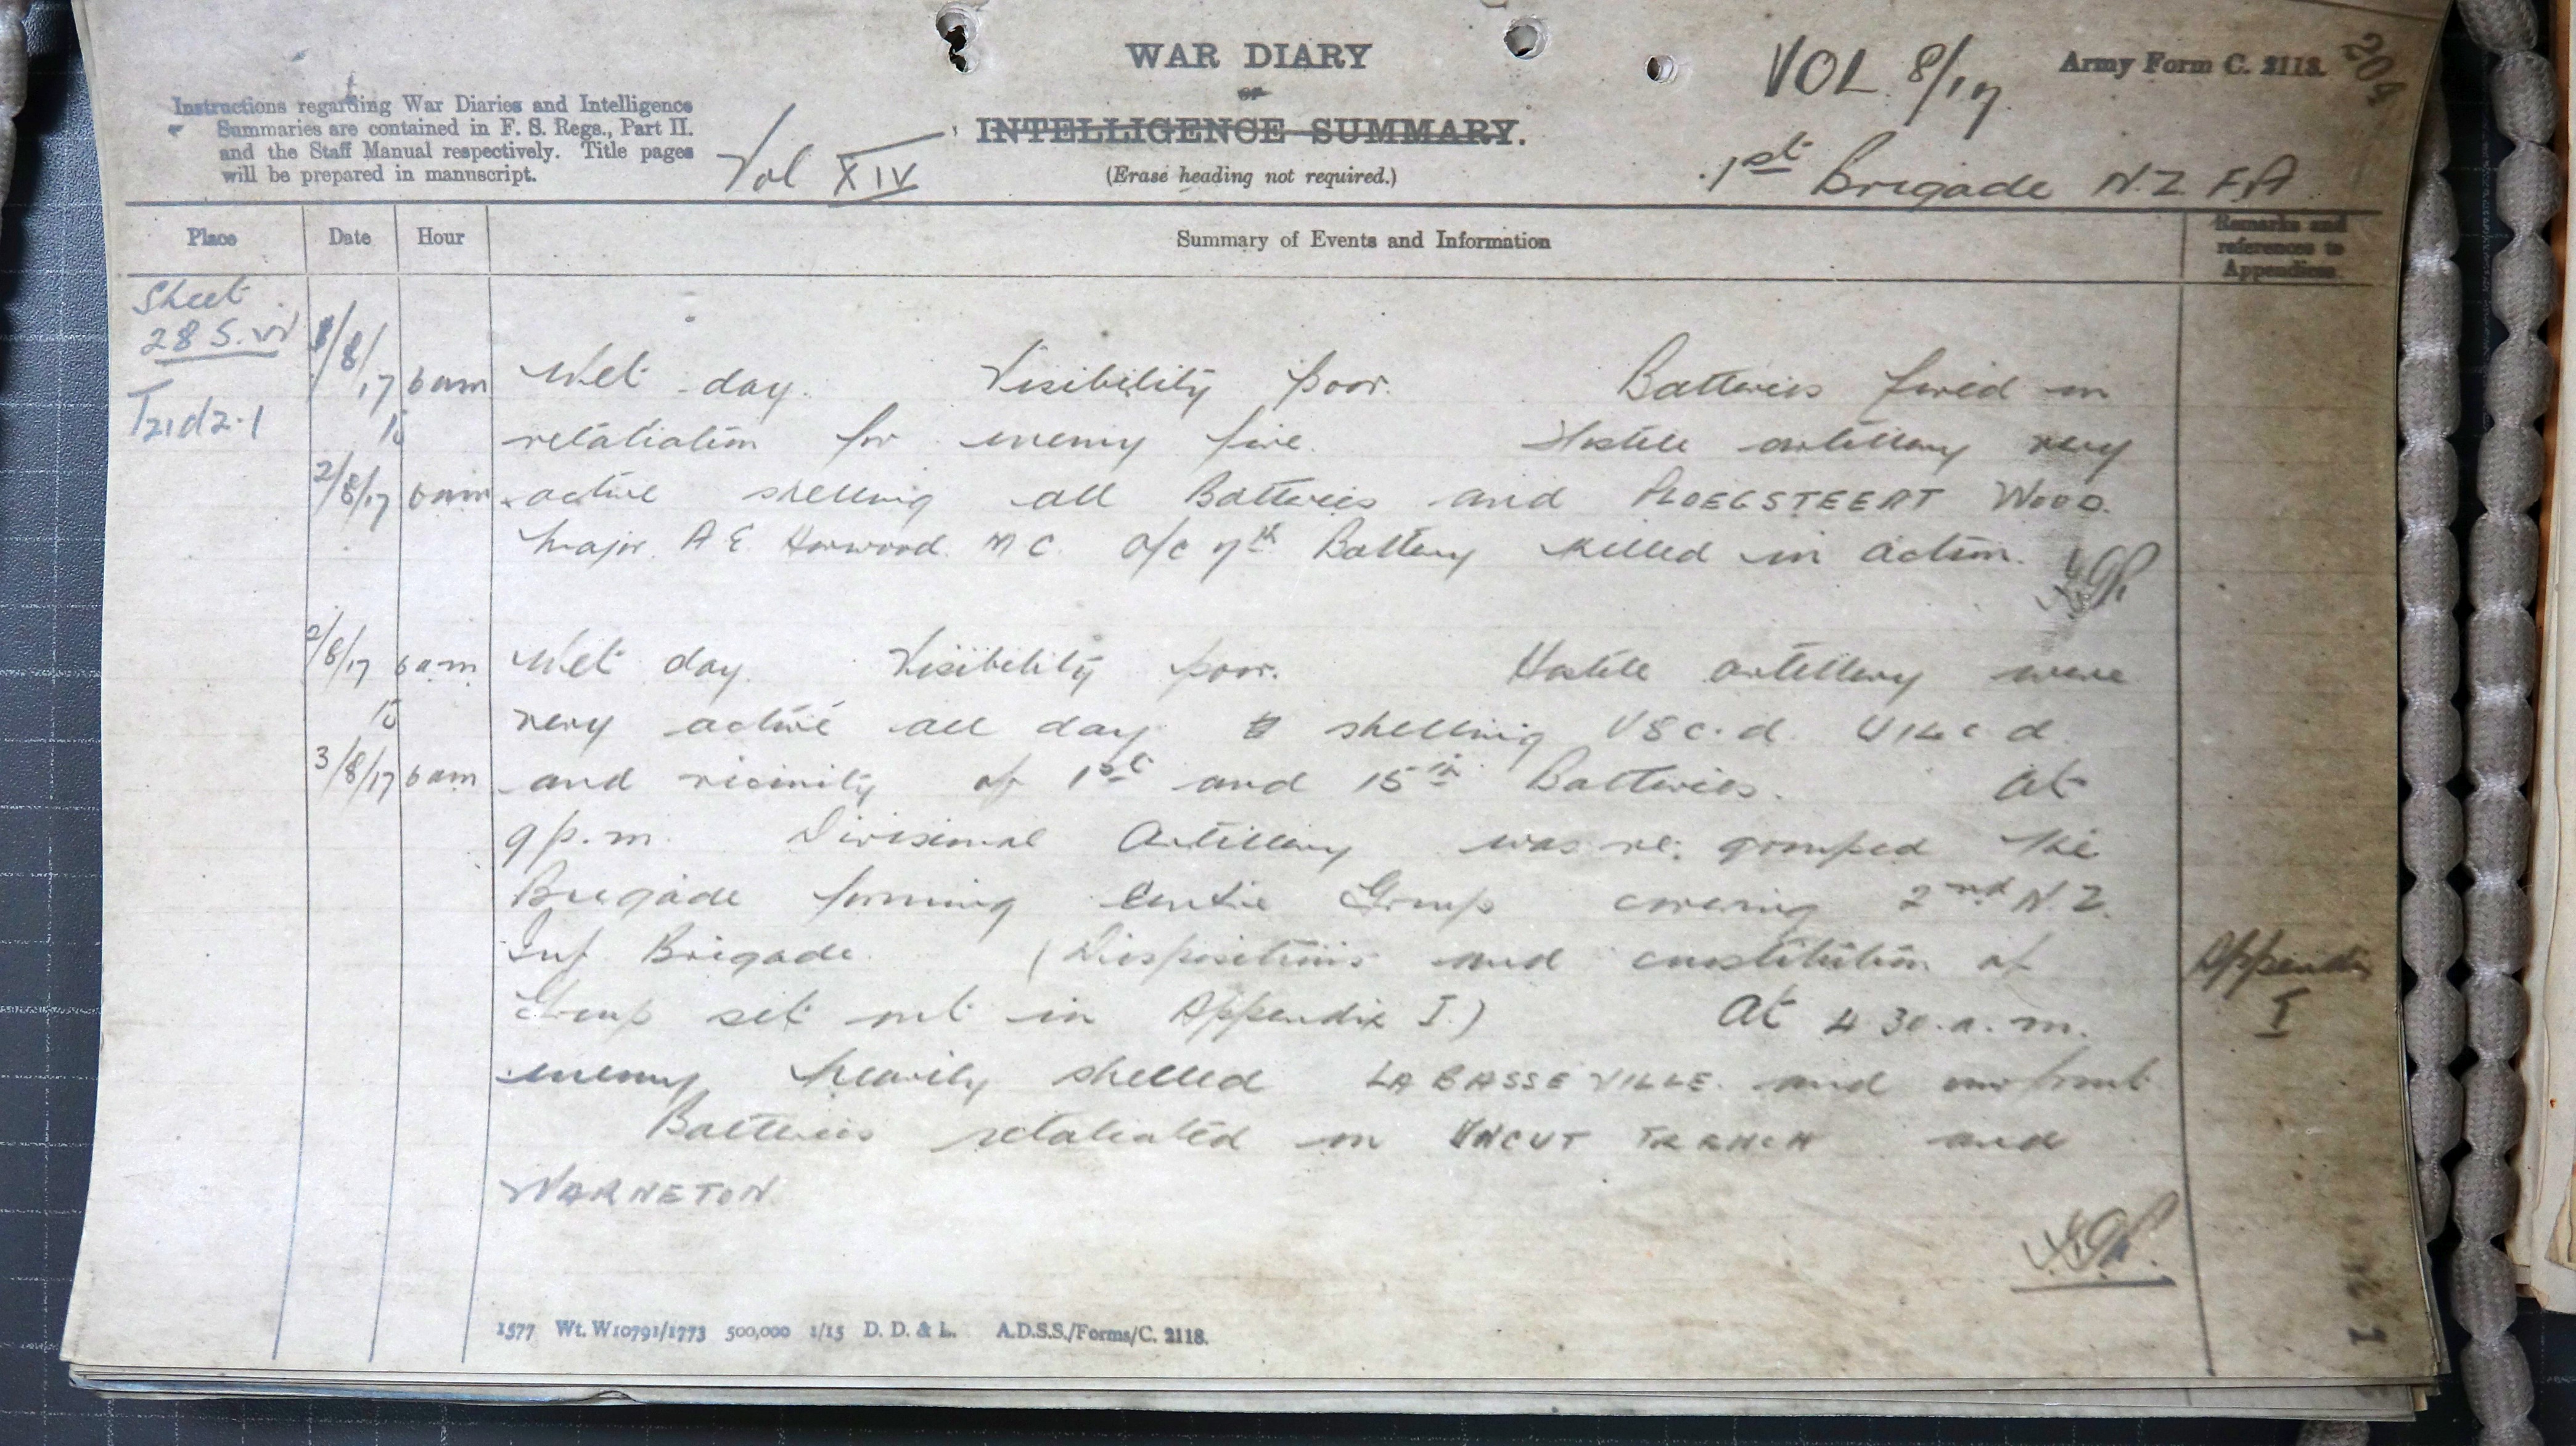 WAR DIARY
or
INTELLIGENCE SUMMARY.
(Erase heading not required.)
Instructions regarding War Diaries and Intelligence
Summaries are contained in F. S. Regs., Part II.
and the Staff Manual respectively. Title pages
will be prepared in manuscript.
Vol XIV
VOL 8/17
Army Form C. 2118.
204
1st Brigade N.Z F.A
Place Date Hour Summary of Events and Information Remarks and
references to
Appendices
Sheet
28 S.W
T21d2.1
1/8/17 6am Wet day. Visibility poor. Batteries fired in
to retaliation for enemy fire. Hostile artillery very
2/8/17 6am active shelling all Batteries and PLOEGSTEERT WOOD.
Major A E Horwood M C. O/C 7th Battery killed in action.
2/8/17 6am Wet day. Visibility poor. Hostile artillery were
to very active all day shelling U8c.d. U14c d
3/8/17 6am and vicinity of 1st and 15th Batteries. At
9 p.m. Divisional Artillery was re. grouped the
Brigade forming Centre Group covering 2nd N.Z.
Inf Brigade. (Dispositions and constitution of
Group set out in Appendix I.) At 4 30.a.m.
enemy heavily shelled LA BASSE VILLE. and our front
Batteries retaliated on UNCUT TRENCH and
WARNETON
Appendix
I
1577 Wt. W10791/1773 500,000 1/15 D. D. & L. A.D.S.S./Forms/C. 2118.
1